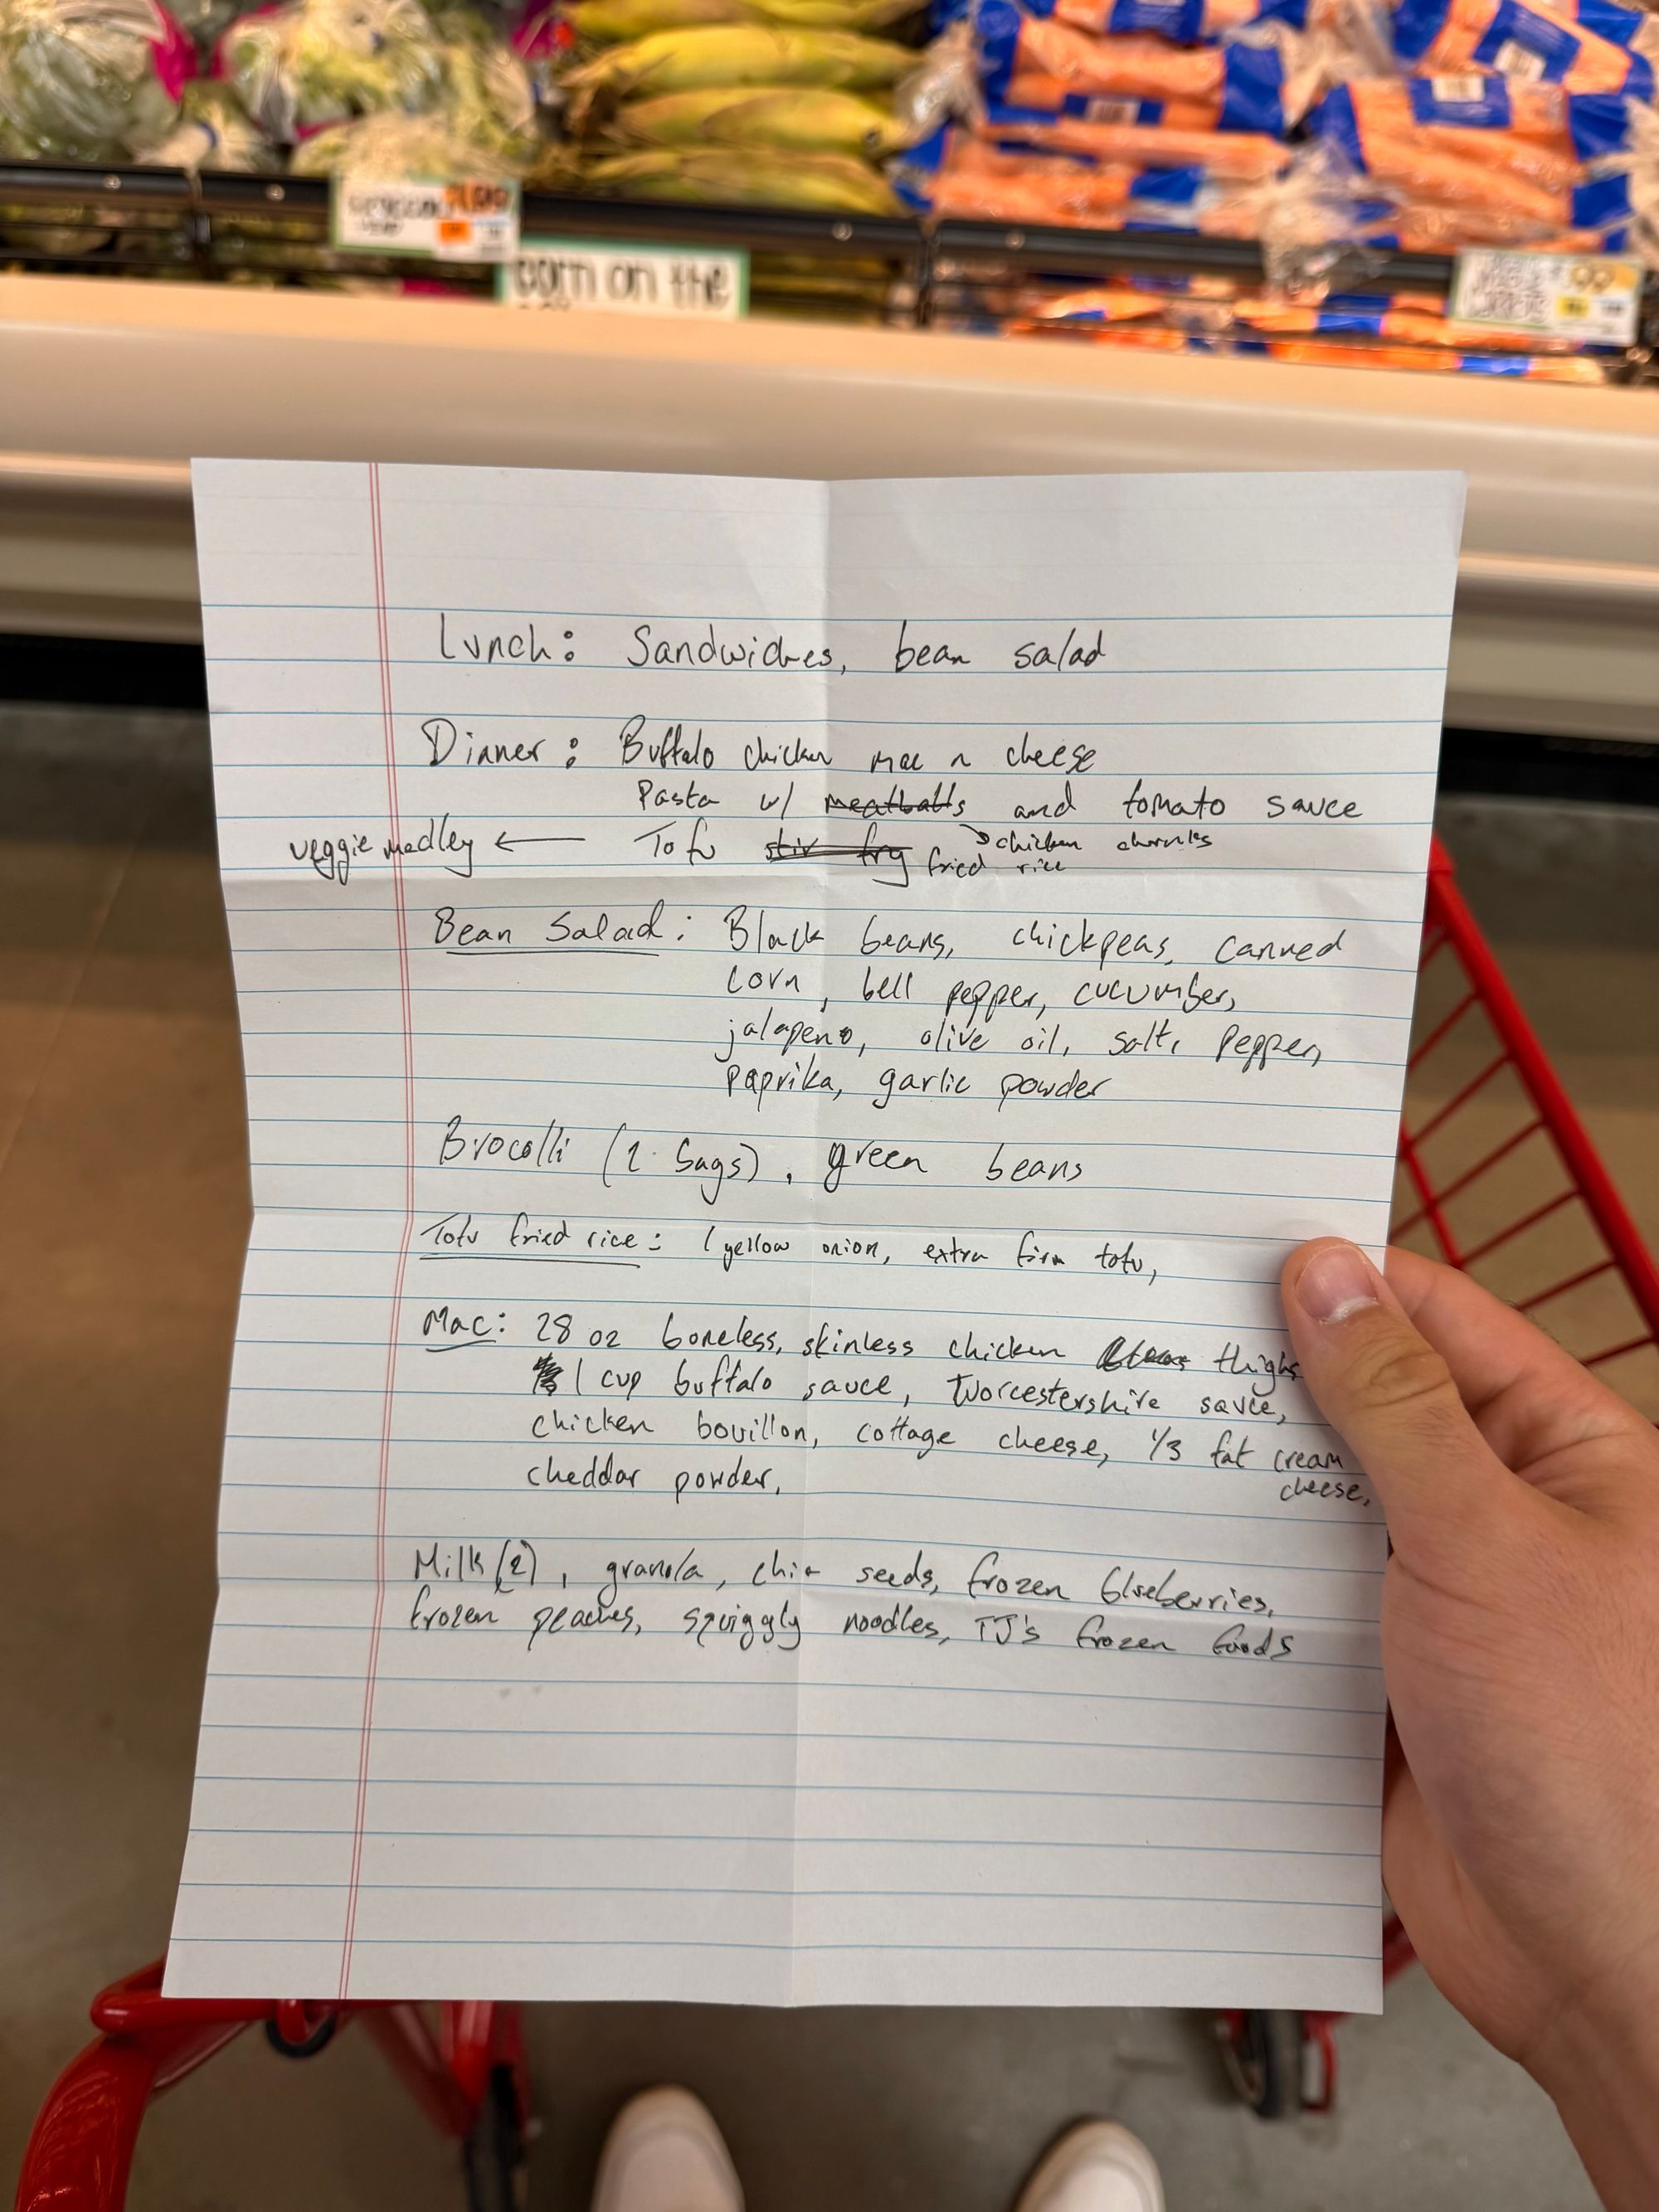 corn on the
Lunch: Sandwiches, bean salad
Dinner: Buffalo chicken mac n cheese
Pasta w/ meatballs and tomato sauce
→ chicken chunks
veggie medley ← Tofu stir fry fried rice
Bean Salad: Black beans, chickpeas, canned
corn, bell pepper, cucumber,
jalapeno, olive oil, salt, pepper,
paprika, garlic powder
Brocolli (2 bags), green beans
Tofu fried rice: 1 yellow onion, extra firm tofu,
Mac: 28 oz boneless, skinless chicken thighs
1 cup buffalo sauce, Worcestershire sauce,
chicken bouillon, cottage cheese, 1/3 fat cream
cheese,
cheddar powder,
Milk (2), granola, chia seeds, frozen blueberries,
frozen peaches, squiggly noodles, TJ's frozen foods